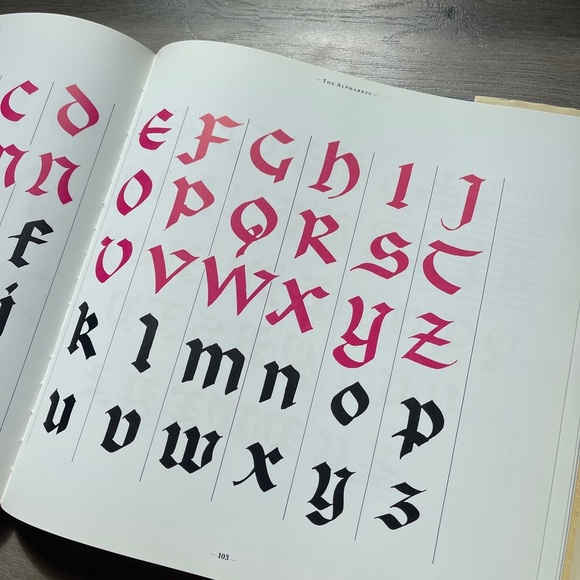 C D
M N
f
j
THE ALPHABETS
E F G H I J
O P Q R S T
U V W X Y Z
k l m n o p
u v w x y z
– 103 –